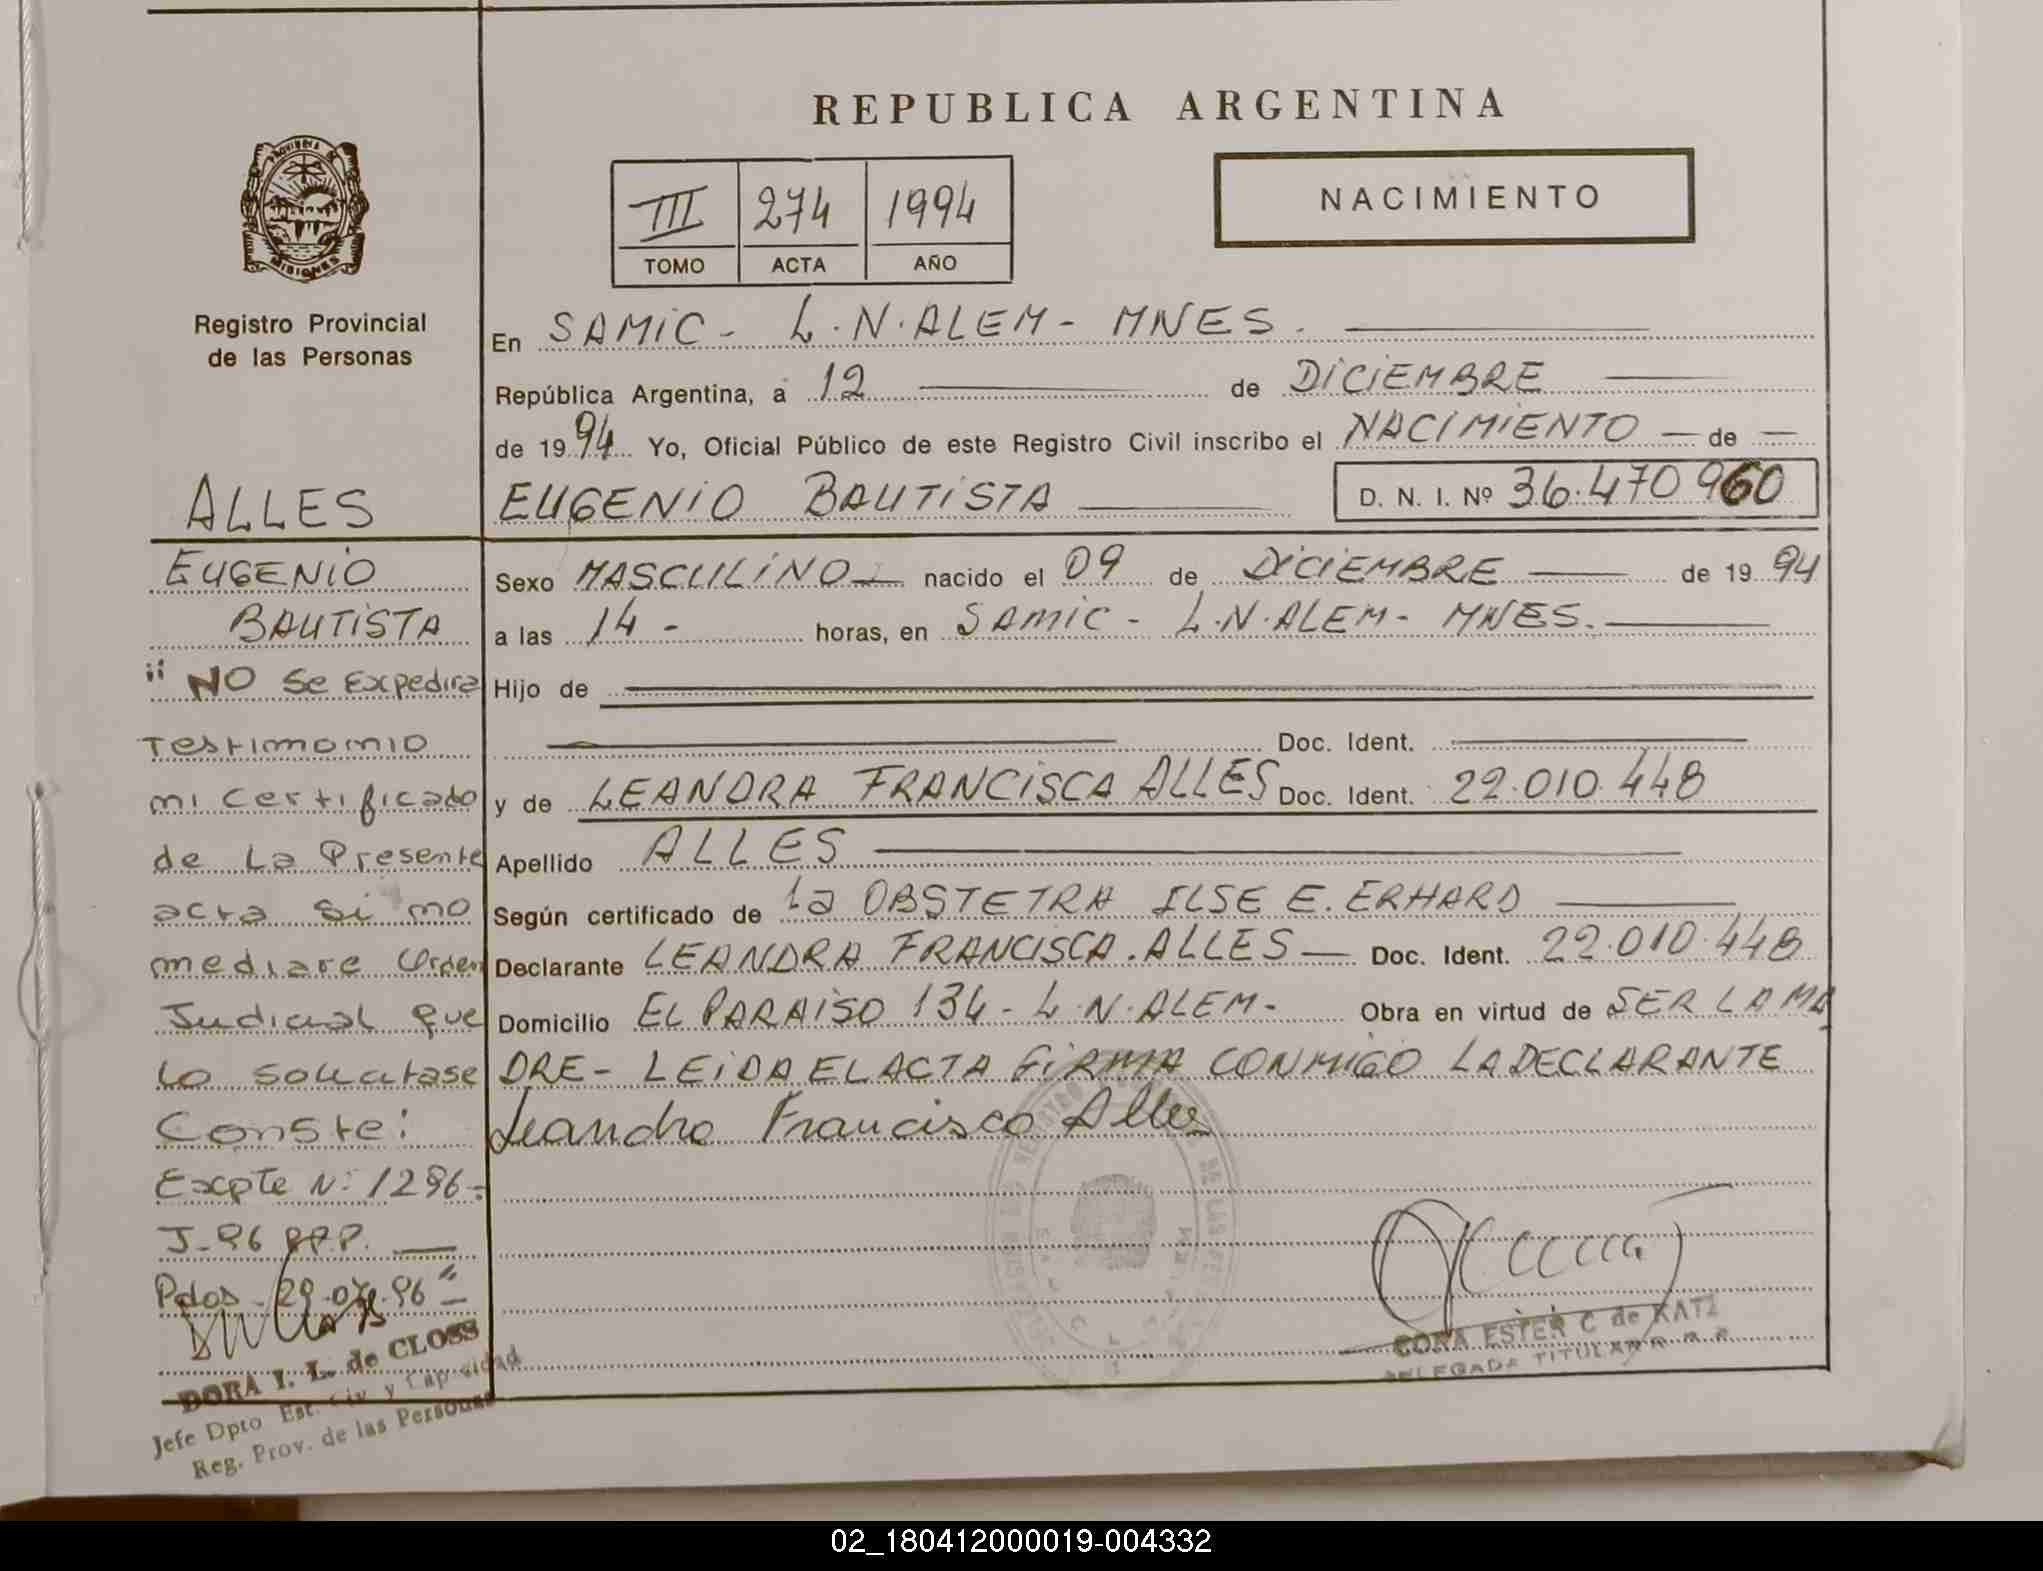 REPUBLICA ARGENTINA
PROVINCIA DE
MISIONES
III 274 1994
TOMO ACTA AÑO
NACIMIENTO
Registro Provincial
de las Personas
ALLES
EUGENIO
BAUTISTA
"NO Se Expedira
Testimonio
ni certificado
de La Presente
acta si no
mediare Orden
Judicial que
Lo solicitase
Conste:
Expte Nº 1296-
J-96 RPP.
Pdas. 29-07-96"
DORA I. L. de CLOSS
Jefe Dpto Est. Civ y Capacidad
Reg. Prov. de las Personas
En SAMIC - L.N.ALEM - MNES.
República Argentina, a 12 de DICIEMBRE
de 1994 Yo, Oficial Público de este Registro Civil inscribo el NACIMIENTO de
EUGENIO BAUTISTA D. N. I. Nº 36.470960
Sexo MASCULINO nacido el 09 de DICIEMBRE de 1994
a las 14 - horas, en SAMIC - L.N.ALEM - MNES.
Hijo de
Doc. Ident.
y de LEANDRA FRANCISCA ALLES Doc. Ident. 22.010.448
Apellido ALLES
Según certificado de La OBSTETRA ILSE E. ERHARD
Declarante LEANDRA FRANCISCA. ALLES Doc. Ident. 22.010.448
Domicilio EL PARAISO 134 - L.N.ALEM - Obra en virtud de SER LA MA
DRE - LEIDA EL ACTA FIRMA CONMIGO LA DECLARANTE
Leandra Francisca Alles
CORA ESTER C de KATZ
DELEGADA TITULAR
02_180412000019-004332